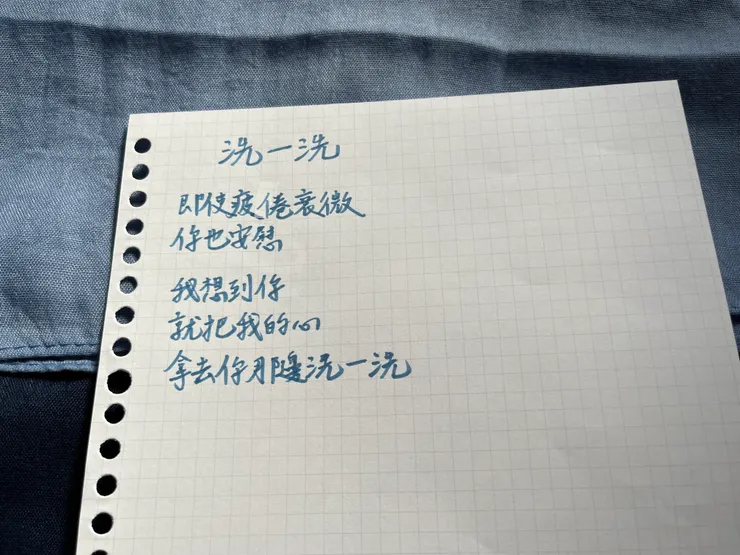 洗一洗
即使疲倦衰微
你也安慰
我想到你
就把我的心
拿去你那邊洗一洗